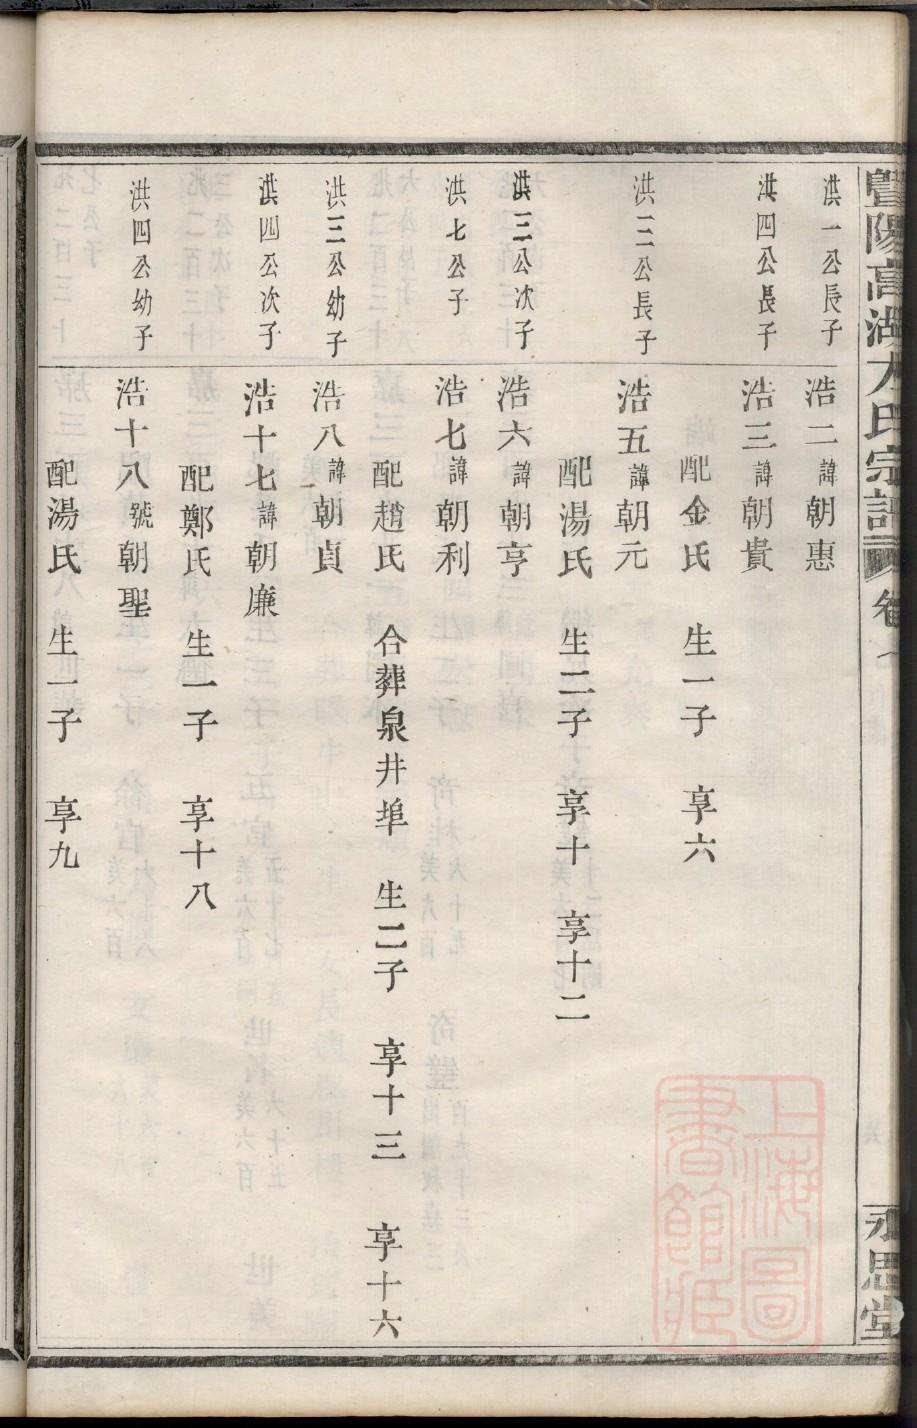 暨陽高湖方氏宗譜 卷
永思堂
洪一公長子
浩二諱朝惠
洪四公長子
浩三諱朝貴
配金氏 生一子 享六
洪三公長子
浩五諱朝元
配湯氏 生二子 享十 享十二
洪三公次子
浩六諱朝亨
洪七公子
浩七諱朝利
配趙氏 合葬泉井埠 生二子 享十三 享十六
洪三公幼子
浩八諱朝貞
洪四公次子
浩十七諱朝廉
配鄭氏 生一子 享十八
洪四公幼子
浩十八號朝聖
配湯氏 生一子 享九
上海圖書館藏